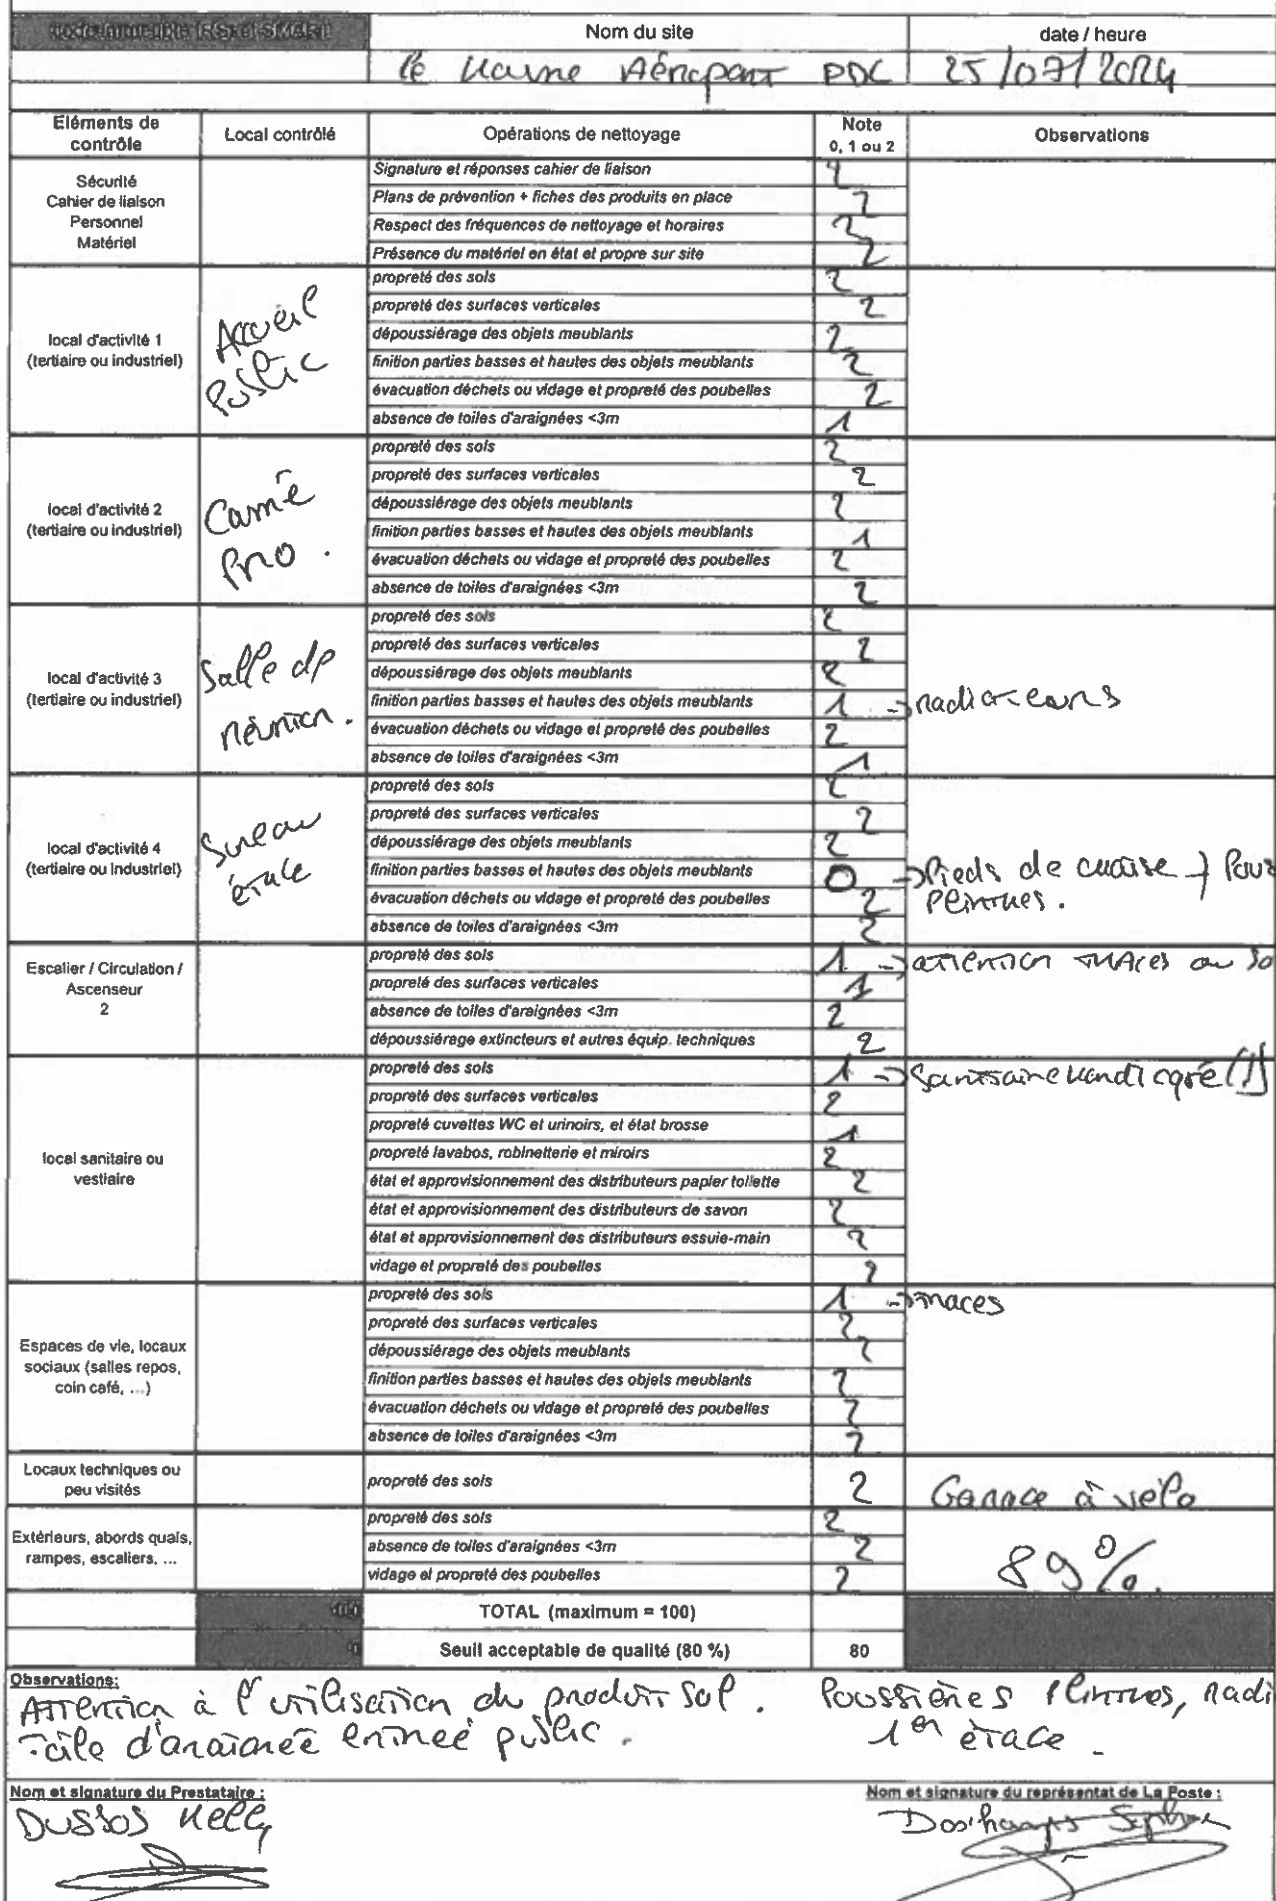 Nom du site
date / heure
Le Havre Aéroport PDC
25/07/2024
Eléments de contrôle
Local contrôlé
Opérations de nettoyage
Note
0, 1 ou 2
Observations
Sécurité
Cahier de liaison
Personnel
Matériel
Signature et réponses cahier de liaison 2
Plans de prévention + fiches des produits en place 2
Respect des fréquences de nettoyage et horaires 2
Présence du matériel en état et propre sur site 2
local d'activité 1
(tertiaire ou industriel)
Accueil
Public
propreté des sols 2
propreté des surfaces verticales 2
dépoussiérage des objets meublants 2
finition parties basses et hautes des objets meublants 2
évacuation déchets ou vidage et propreté des poubelles 2
absence de toiles d'araignées <3m 1
local d'activité 2
(tertiaire ou industriel)
Carré
Pro.
propreté des sols 2
propreté des surfaces verticales 2
dépoussiérage des objets meublants 2
finition parties basses et hautes des objets meublants 1
évacuation déchets ou vidage et propreté des poubelles 2
absence de toiles d'araignées <3m 2
local d'activité 3
(tertiaire ou industriel)
Salle de
réunion.
propreté des sols 2
propreté des surfaces verticales 2
dépoussiérage des objets meublants 2
finition parties basses et hautes des objets meublants 1 -> radiateurs
évacuation déchets ou vidage et propreté des poubelles 2
absence de toiles d'araignées <3m 1
local d'activité 4
(tertiaire ou industriel)
Bureau
étage
propreté des sols 2
propreté des surfaces verticales 2
dépoussiérage des objets meublants 2
finition parties basses et hautes des objets meublants 0 -> Pieds de chaise +
plinthes.
évacuation déchets ou vidage et propreté des poubelles 2
absence de toiles d'araignées <3m 2
Escalier / Circulation /
Ascenseur
2
propreté des sols 1 -> attention traces au so
propreté des surfaces verticales 1
absence de toiles d'araignées <3m 2
dépoussiérage extincteurs et autres équip. techniques 2
local sanitaire ou
vestiaire
propreté des sols 1 -> Sanitaire handicapé (1)
propreté des surfaces verticales 2
propreté cuvettes WC et urinoirs, et état brosse 1
propreté lavabos, robinetterie et miroirs 2
état et approvisionnement des distributeurs papier toilette 2
état et approvisionnement des distributeurs de savon 2
état et approvisionnement des distributeurs essuie-main 2
vidage et propreté des poubelles 2
Espaces de vie, locaux
sociaux (salles repos,
coin café, ...)
propreté des sols 1 -> traces
propreté des surfaces verticales 2
dépoussiérage des objets meublants 2
finition parties basses et hautes des objets meublants 2
évacuation déchets ou vidage et propreté des poubelles 2
absence de toiles d'araignées <3m 2
Locaux techniques ou
peu visités
propreté des sols 2 Garage à vélo
Extérieurs, abords quais,
rampes, escaliers, ...
propreté des sols 2
absence de toiles d'araignées <3m 2
vidage et propreté des poubelles 2
89%.
TOTAL (maximum = 100)
Seuil acceptable de qualité (80 %) 80
Observations:
Attention à l'utilisation du produit sol. Poussières plinthes, radi
Toile d'araignée entrée public. 1er étage.
Nom et signature du Prestataire :
Nom et signature du représentat de La Poste :
Dussos Kelly